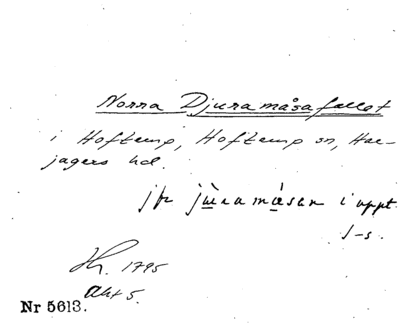 Norra Djuramåsafallet
i Hoftemp, Hoftemp sn, Har-
jagers hd.
jfr jùramǻsan i uppt.
J-s.
Hk. 1795
Akt 5.
Nr 5613.